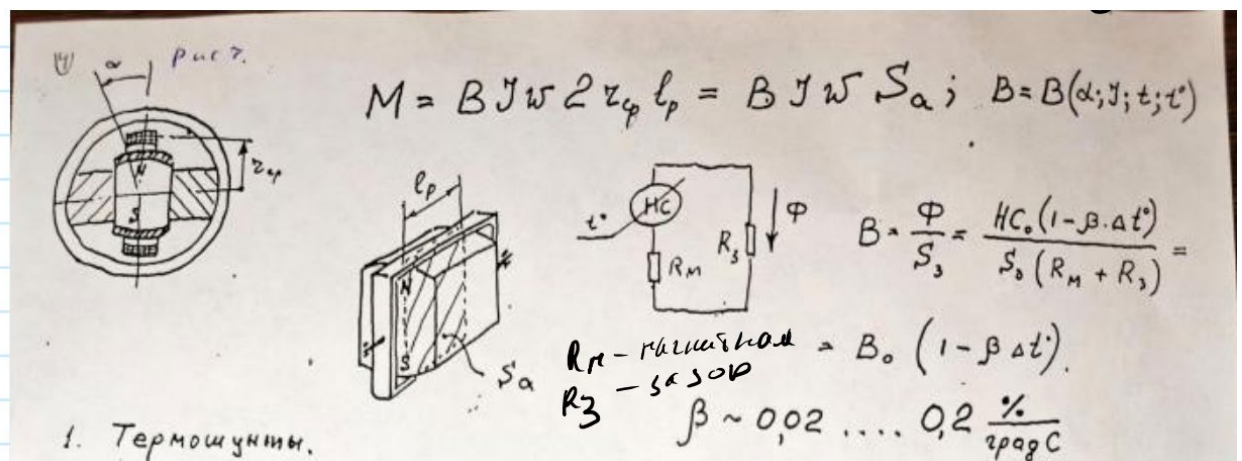 Рис 7.
α
M = B J w 2 r_ср l_р = B J w S_a ; B = B(α; J; t; t°)
N
S
r_ср
l_р
N
S
S_a
HC
t°
R_м
R_з
Φ
B = Φ / S_з = HC₀ (1 - β · Δt°) / S_з (R_м + R_з) =
= B₀ (1 - β Δt°).
R_м - магнитная
R_з - зазор
β ~ 0,02 .... 0,2 % / град С
1. Термошунты.